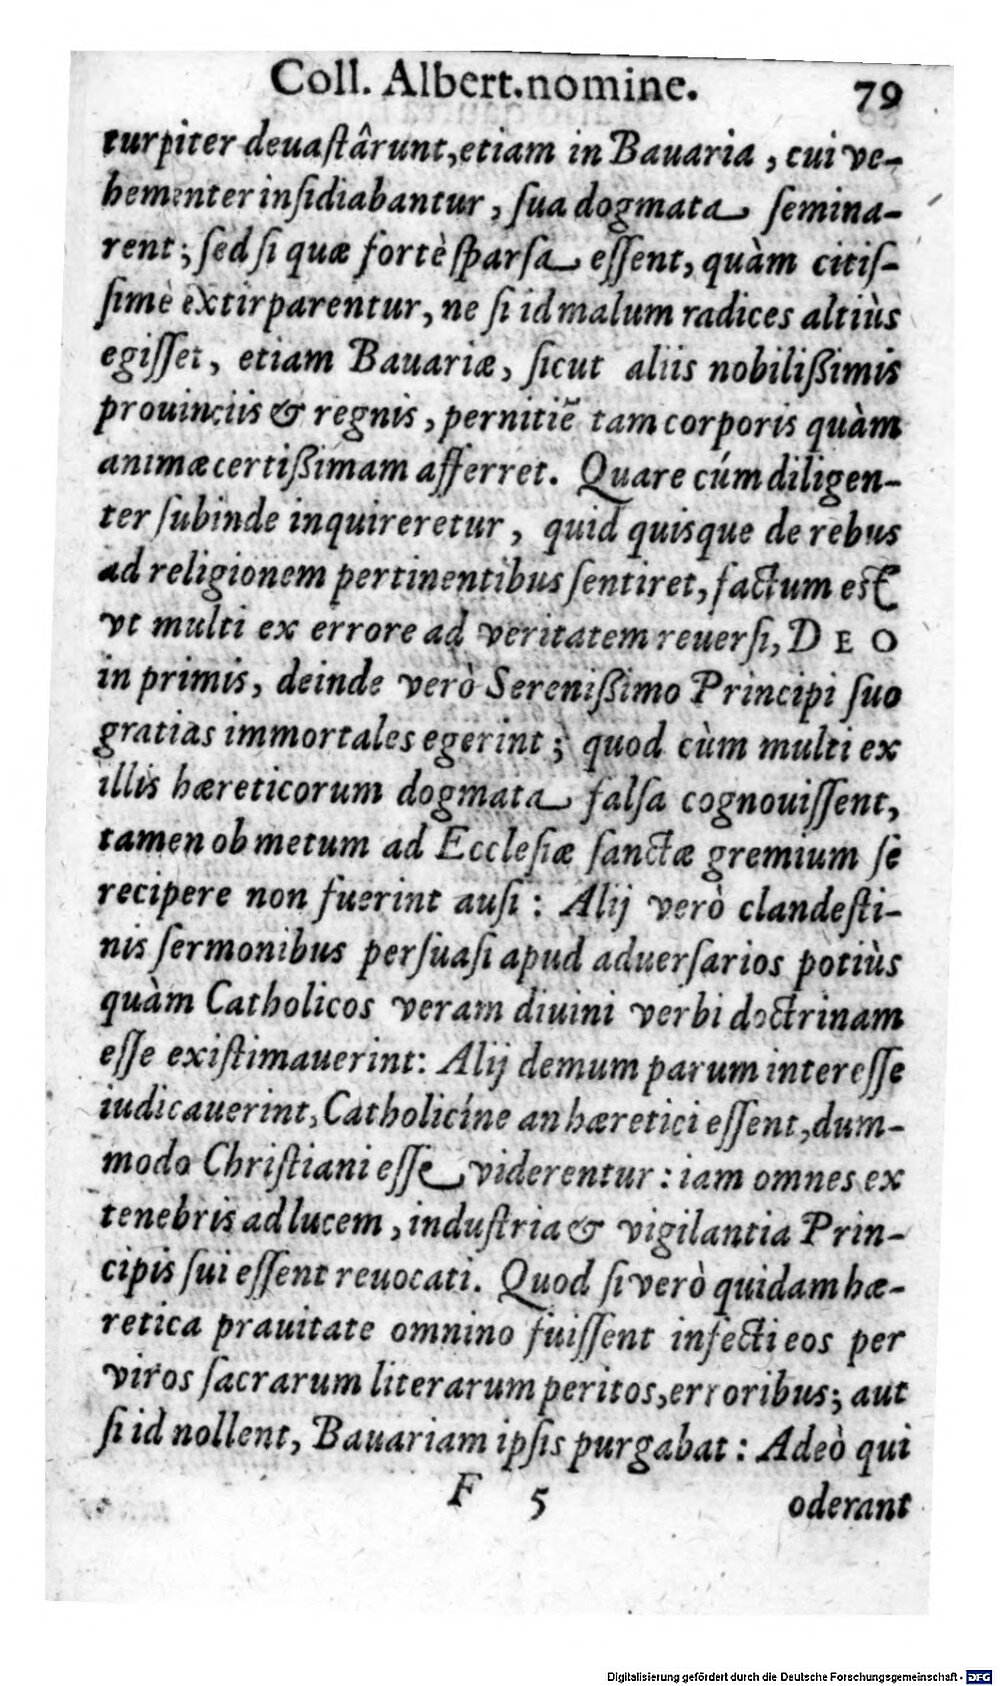 Coll. Albert. nomine. 79
turpiter deuaſtârunt, etiam in Bauaria, cui ve-
hementer inſidiabantur, ſua dogmata ſemina-
rent; ſed ſi quæ fortè ſparſa eſſent, quàm citiſ-
ſimè extirparentur, ne ſi id malum radices altiùs
egiſſet, etiam Bauariæ, ſicut aliis nobilißimis
prouinciis & regnis, pernitiẽ tam corporis quàm
animæ certißimam afferret. Quare cúm diligen-
ter ſubinde inquireretur, quid quisque de rebus
ad religionem pertinentibus ſentiret, factum eſt
vt multi ex errore ad veritatem reuerſi, DEO
in primis, deinde verò Serenißimo Principi ſuo
gratias immortales egerint; quod cùm multi ex
illis hæreticorum dogmata falſa cognouiſſent,
tamen ob metum ad Eccleſiæ ſanctæ gremium ſe
recipere non fuerint auſi: Alij verò clandeſti-
nis ſermonibus perſuaſi apud aduerſarios potiùs
quàm Catholicos veram diuini verbi doctrinam
eſſe exiſtimauerint: Alij demum parum intereſſe
iudicauerint, Catholicíne an hæretici eſſent, dum-
modo Chriſtiani eſſe viderentur: iam omnes ex
tenebris ad lucem, induſtria & vigilantia Prin-
cipis ſui eſſent reuocati. Quod ſi verò quidam hæ-
retica prauitate omnino fuiſſent infecti eos per
viros ſacrarum literarum peritos, erroribus; aut
ſi id nollent, Bauariam ipſis purgabat: Adeò qui
F 5 oderant
Digitalisierung gefördert durch die Deutsche Forschungsgemeinschaft - DFG